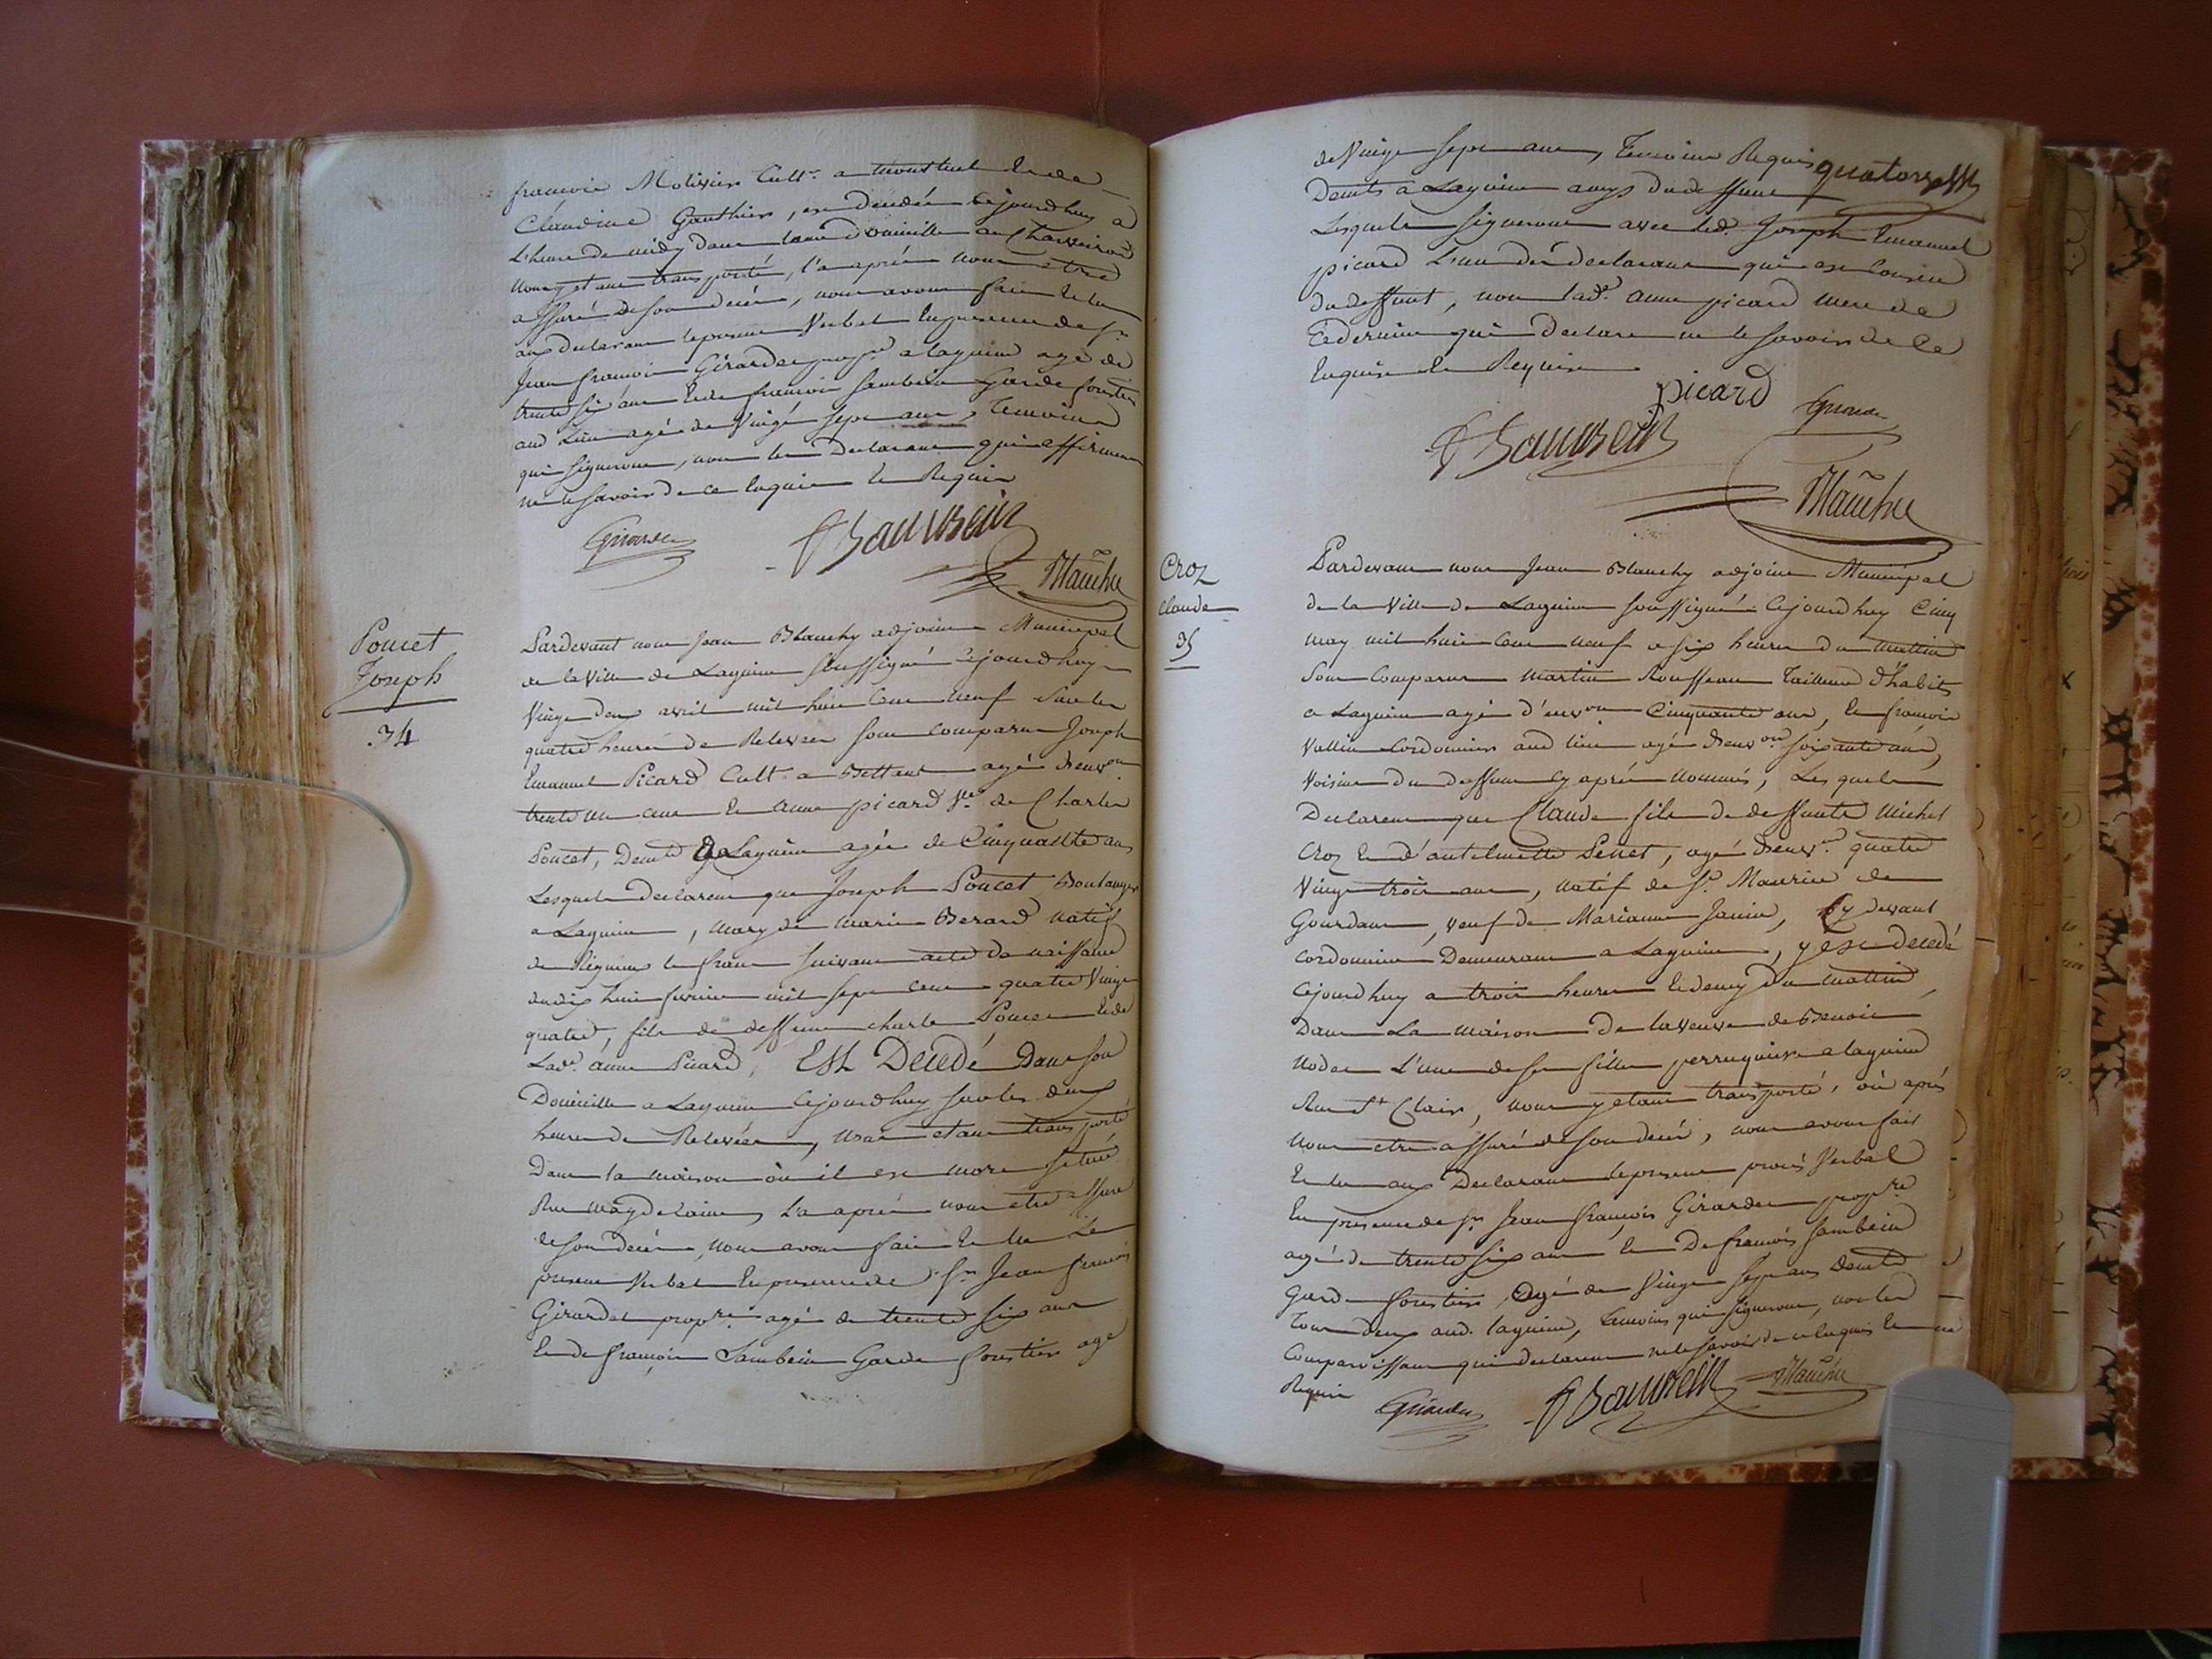 françois Molivier Cult.r a montluel et de
Claudine Gauthier, est décédée cejourdhuy à
L'heure de midy dans leur domicille au Charveiron
nous y etant transporté, l'a aprés nous etre
assuré de son décés, nous avons fait et lu
aux declarans le present Verbal En presence de Sr
Jean françois Girardet prop.re a lagnieu agé de
trente six ans et de françois Sambein Garde forestier
aud Lieu agé de Vingt sept ans, Temoins
qui signeront, non les Declarans qui affirment
ne le savoir de ce Enquis et Requis
Girardet
f Sambein
Blanchy
Poncet
Joseph
34
Pardevant nous Jean Blanchy adjoint Municipal
de la Ville de Lagnieu soussigné cejourdhuy
Vingt deux avril mil huit Cent neuf Sur les
quatre heures de Relevée sont comparus Joseph
Emanuel Picard Cult. a Bettant agé d'env.on
trente un ans et anne picard V.ve de Charles
Poncet, Dem.te a Lagnieu agée de Cinquante ans
Lesquels declarent que Joseph Poncet Boulanger
a Lagnieu, mary de marie Berard natif
de Rignieux le franc suivant acte de naissance
du dix huit fevrier mil sept cent quatre Vingt
quatre, fils de deffunt charles Poncet et de
Lad.e anne Picard, Est Decedé Dans son
Domicille a Lagnieu Cejourdhuy sur les deux
heures de Relevée, nous etant transporté
Dans la maison où il est mort située
Rue magdelaine, La aprés nous etre assuré
de son decés, nous avons fait et lu Le
present Verbal En presence de Sr Jean françois
Girardet prop.re agé de trente six ans
et de françois Sambein Garde forestier agé
de Vingt sept ans, Temoins Requis quatorze
Demts a Lagnieu amys du deffunt
Lesquels signeront avec led. Joseph Emanuel
picard L'un des declarans qui est Cousin
du deffunt, non lad.e anne picard mere de
Ce dernier qui declare ne le savoir de Ce
Enquise et Requise
picard
Girardet
f Sambein
Blanchy
Croz
Claude
35
Pardevant nous Jean Blanchy adjoint Municipal
de la Ville de Lagnieu soussigné Cejourdhuy Cinq
may mil huit Cent neuf a six heures du mattin
Sont Comparus martin Rousseau Tailleur d'habits
a Lagnieu agé d'env.on Cinquante ans, et françois
Vallin Cordonnier aud lieu agé d'env.on soixante ans,
Voisins du deffunt cy aprés nommés, Lesquels
Declarent que Claude fils de deffunts Michel
Croz et d'antelmette Penet, agé d'env.n quatre
Vingt trois ans, natif de St. Maurice de
Gourdans, veuf de Marianne Janin, Cy devant
Cordonnier Demeurant a Lagnieu, y est decedé
Cejourdhuy a trois heures et demy du mattin,
Dans La maison De la veuve de Benoit
Nodet L'une de ses filles perruquiere a lagnieu
Rue St Clair, nous y etant transporté, où aprés
nous etre assuré de son decés, nous avons fait
et lu aux Declarans le present procés Verbal
En presence de Sr Jean françois Girardet prop.re
agé de trente six ans et De françois Sambein
Garde forestier, agé de Vingt sept ans Demts
Tous deux aud. lagnieu, Temoins qui signeront, non les
Comparoissans qui declarent ne le savoir de ce Enquis et
Requis
Girardet
f Sambein
Blanchy